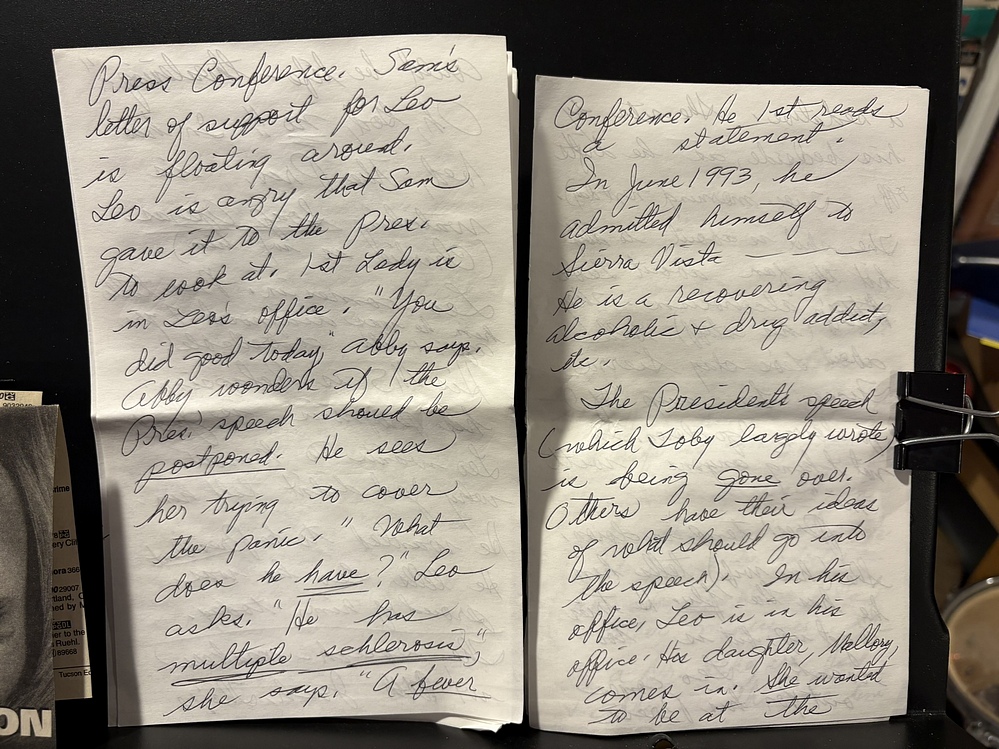 Press Conference. Sam's
letter of support for Leo
is floating around.
Leo is angry that Sam
gave it to the Pres.
to look at. 1st Lady is
in Leo's office. "You
did good today," Abby says.
Abby wonders if the
Pres. speech should be
postponed. He sees
her trying to cover
the panic. "What
does he have?" Leo
asks. "He has
multiple schlerosis,"
she says. "A fever
Conference. He 1st reads
a statement.
In June 1993, he
admitted himself to
Sierra Vista
He is a recovering
alcoholic + drug addict,
etc.
The President's speech
(which Toby largely wrote)
is being gone over.
Others have their ideas
of what should go into
the speech). In his
office, Leo is in his
office. His daughter, Mallory,
comes in. She wanted
to be at the
ON
Tucson Ed